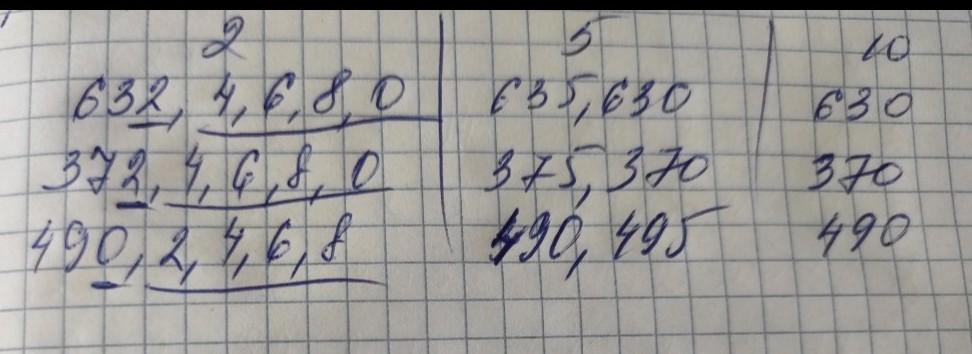 2 5 10
632, 4, 6, 8, 0 635, 630 630
372, 4, 6, 8, 0 375, 370 370
490, 2, 4, 6, 8 490, 495 490